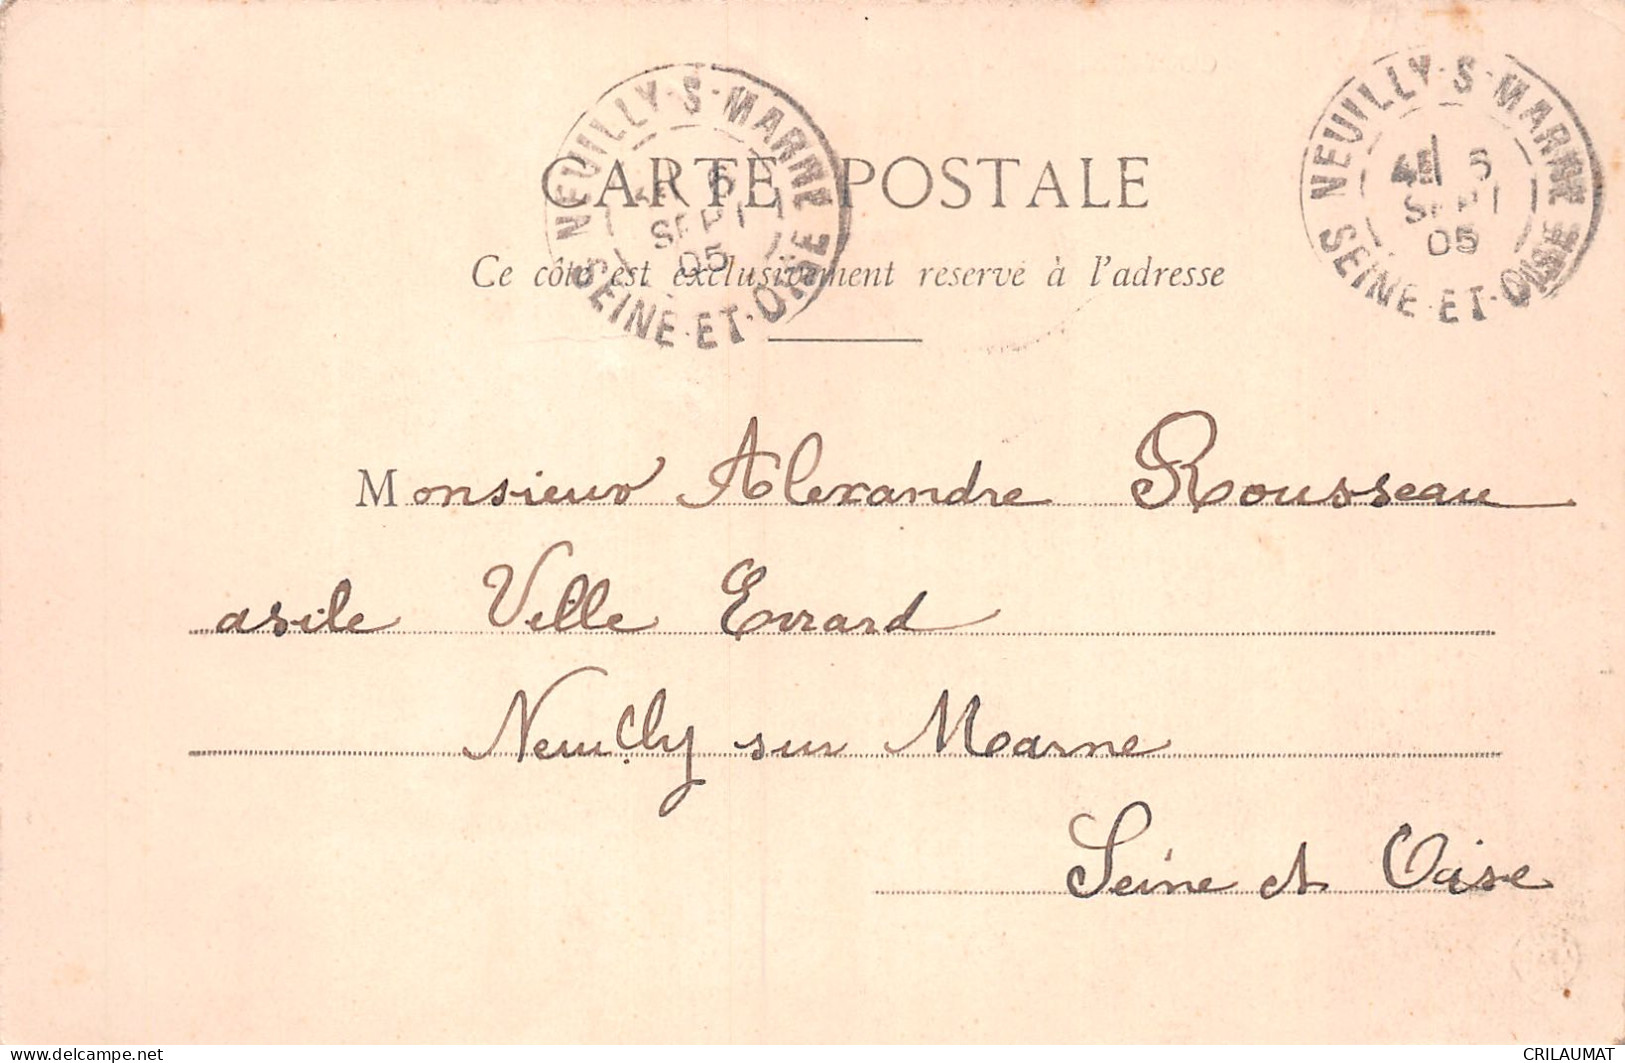 NEUILLY-S-MARNE
6
SEPT
05
SEINE-ET-OISE
NEUILLY-S-MARNE
6
SEPT
05
SEINE-ET-OISE
CARTE POSTALE
Ce côté est exclusivement reservé à l'adresse
Monsieur Alexandre Rousseau
asile Ville Evrard
Neuilly sur Marne
Seine et Oise
www.delcampe.net
CRILAUMAT